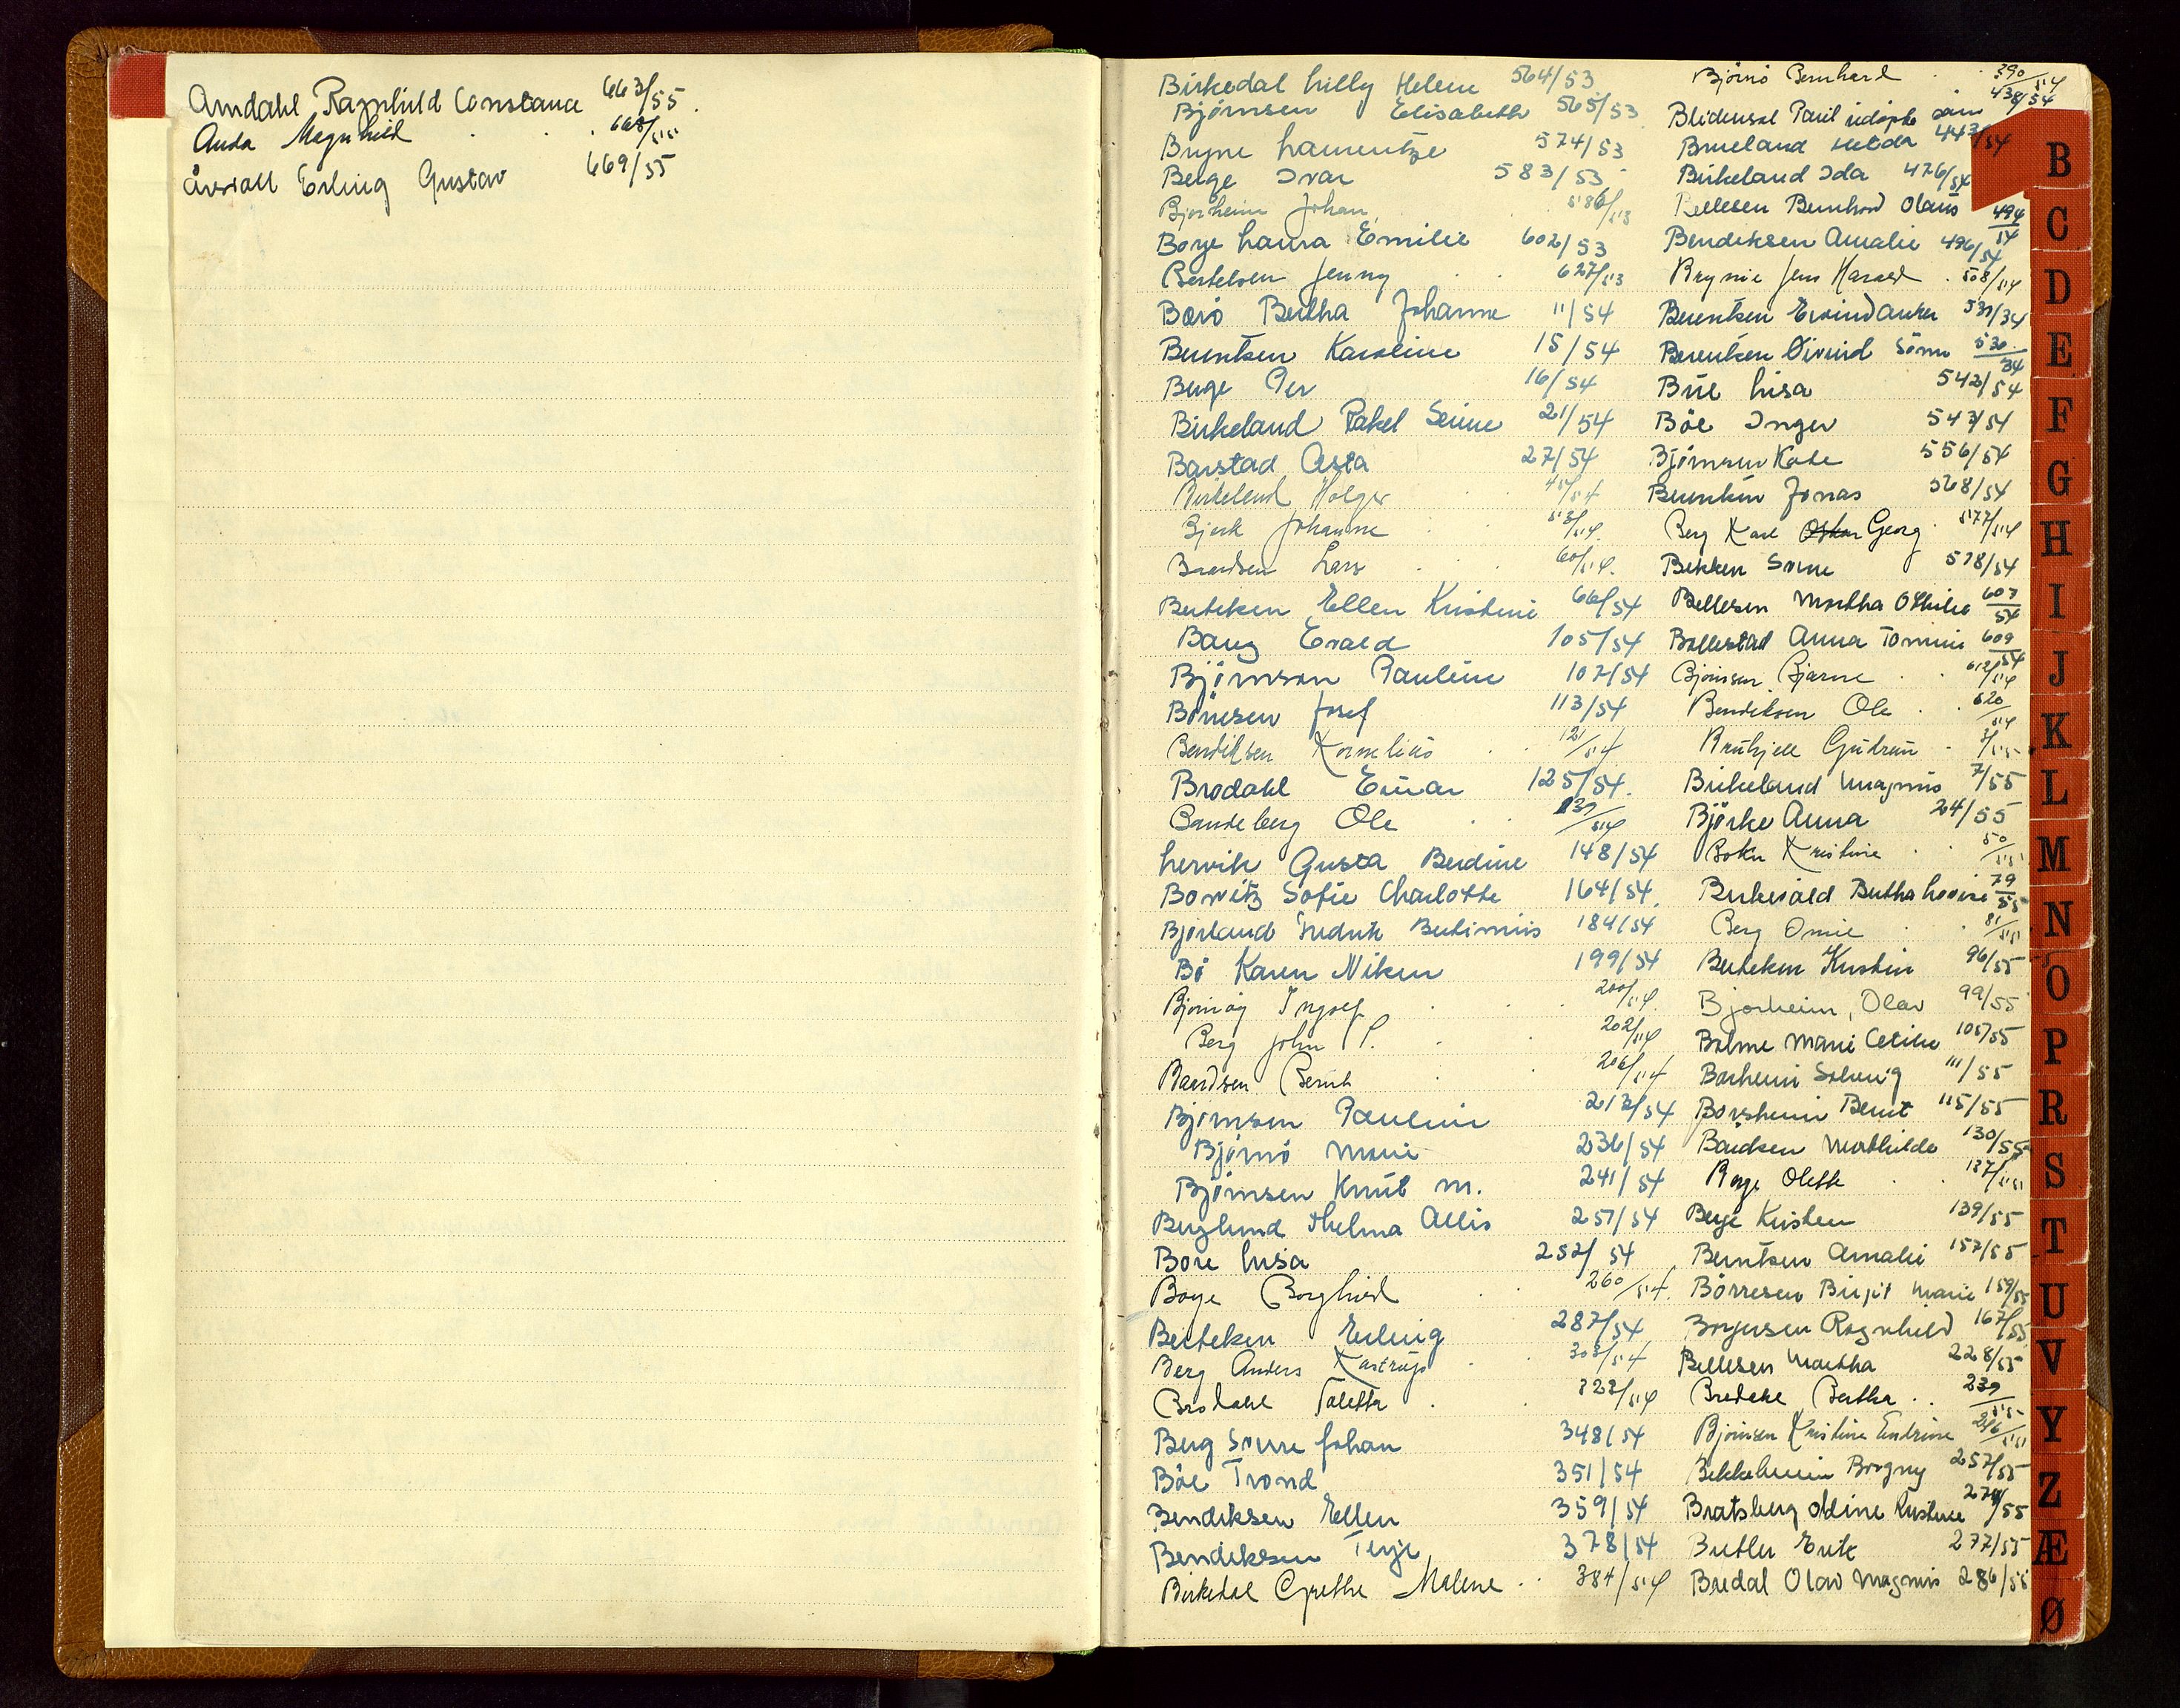 Amdahl Ragnhild Constance 663/55.
Anda Magnhild . . . 668/55
Årsvoll Erling Gustav 669/55
Birkedal Lilly Helene 564/53
Björnsen Elisabeth 565/53
Bryne Laurentze 574/53
Berge Ivar 583/53
Bjorheim Johan 586/53
Borge Laura Emilie 602/53
Bertelsen Jenny . . 627/53
Börö Bertha Johanne 11/54
Berntsen Karoline 15/54
Berge Per 16/54
Birkeland Rakel Serine 21/54
Barstad Asta 27/54
Birkeland Holger . . 45/54
Bjerk Johanne . . 53/54
Baardsen Lars . . 60/54.
Berteksen Ellen Kristine 66/54
Bang Evald 105/54
Björnson Pauline 107/54
Börresen Josef 113/54
Bendiksen Kornelius . . 121/54
Brodahl Einar 125/54.
Bandeberg Ole . . 139/54
Lervik Gusta Berdine 148/54
Borvitz Sofie Charlotte 164/54.
Bjorland Fredrik Bertinius 184/54
Bö Karen Niken 199/54
Bjornög Ingolf . . 200/54.
Berg John P. . . 202/54
Baardsen Bernh . . 206/54
Bjørnsen Pauline 213/54
Bjørnö Marie 236/54
Bjørnsen Knut M. 241/54
Berglund Thelma Allis 251/54
Bore Lisa 252/54
Boye Borghild . 260/54.
Berteksen Erling 287/54
Berg Anders Kastrup . 303/54
Brodahl Toletta . . 323/54
Berg Sverre Johan 348/54
Böe Trond 351/54
Bendiksen Ellen 359/54
Bendiksen Terje 378/54
Birkedal Grethe Malene . . 384/54
Björnö Bernhard . . 390/54
Blidensol Paul udöpte sön 438/54
Brueland Hilda 443/54
Birkeland Ida 476/54
Bellesen Bernhard Olaus 494/54
Bendiksen Amalie 496/54
Brynie Jens Harald . 508/54
Berentsen Eivind Anker 530/54
Berentsen Øivind Sönn 530/54
Bue Lisa 542/54
Böe Inger 543/54
Björnsen Kate 556/54
Berntsen Jonas 568/54
Berg Karl Oskar Georg . 577/54
Bekken Sverre 578/54
Bellesen Martha Othilie 607/54
Bollestad Anna Tomine 609/54
Bjørnsen Bjarne . . 612/54
Bendiksen Ole . . 620/54
Brukjell Gudrun . 3/55
Birkeland Magnus 7/55
Björke Anna 24/55
Bokn Kristine . . 50/55
Birkevold Bertha Lovise 79/55
Berg Omie . . 81/55
Berteksen Kristine 96/55
Bjorheim, Olav 99/55
Bolme Marie Cecilie 105/55
Borheim Solveig 111/55
Borsheim Bernt 115/55
Baardsen Mathilde 130/55
Borge Olette . 137/55
Berge Kristen 139/55
Berntsen Amalie 157/55
Börresen Birgit Marie 159/55
Borgersen Ragnhild 167/55
Bellesen Martha 228/55
Bredehl Bertha . . 239/55
Bjørnsen Kristine Endrine 246/55
Bekkeheim Borgny 257/55
Bratsberg Oline Kristine 274/55
Butler Erik 277/55
Bredal Olav Magnus 286/55
B
C
D
E
F
G
H
I
J
K
L
M
N
O
P
R
S
T
U
V
Y
Z
Æ
Ø